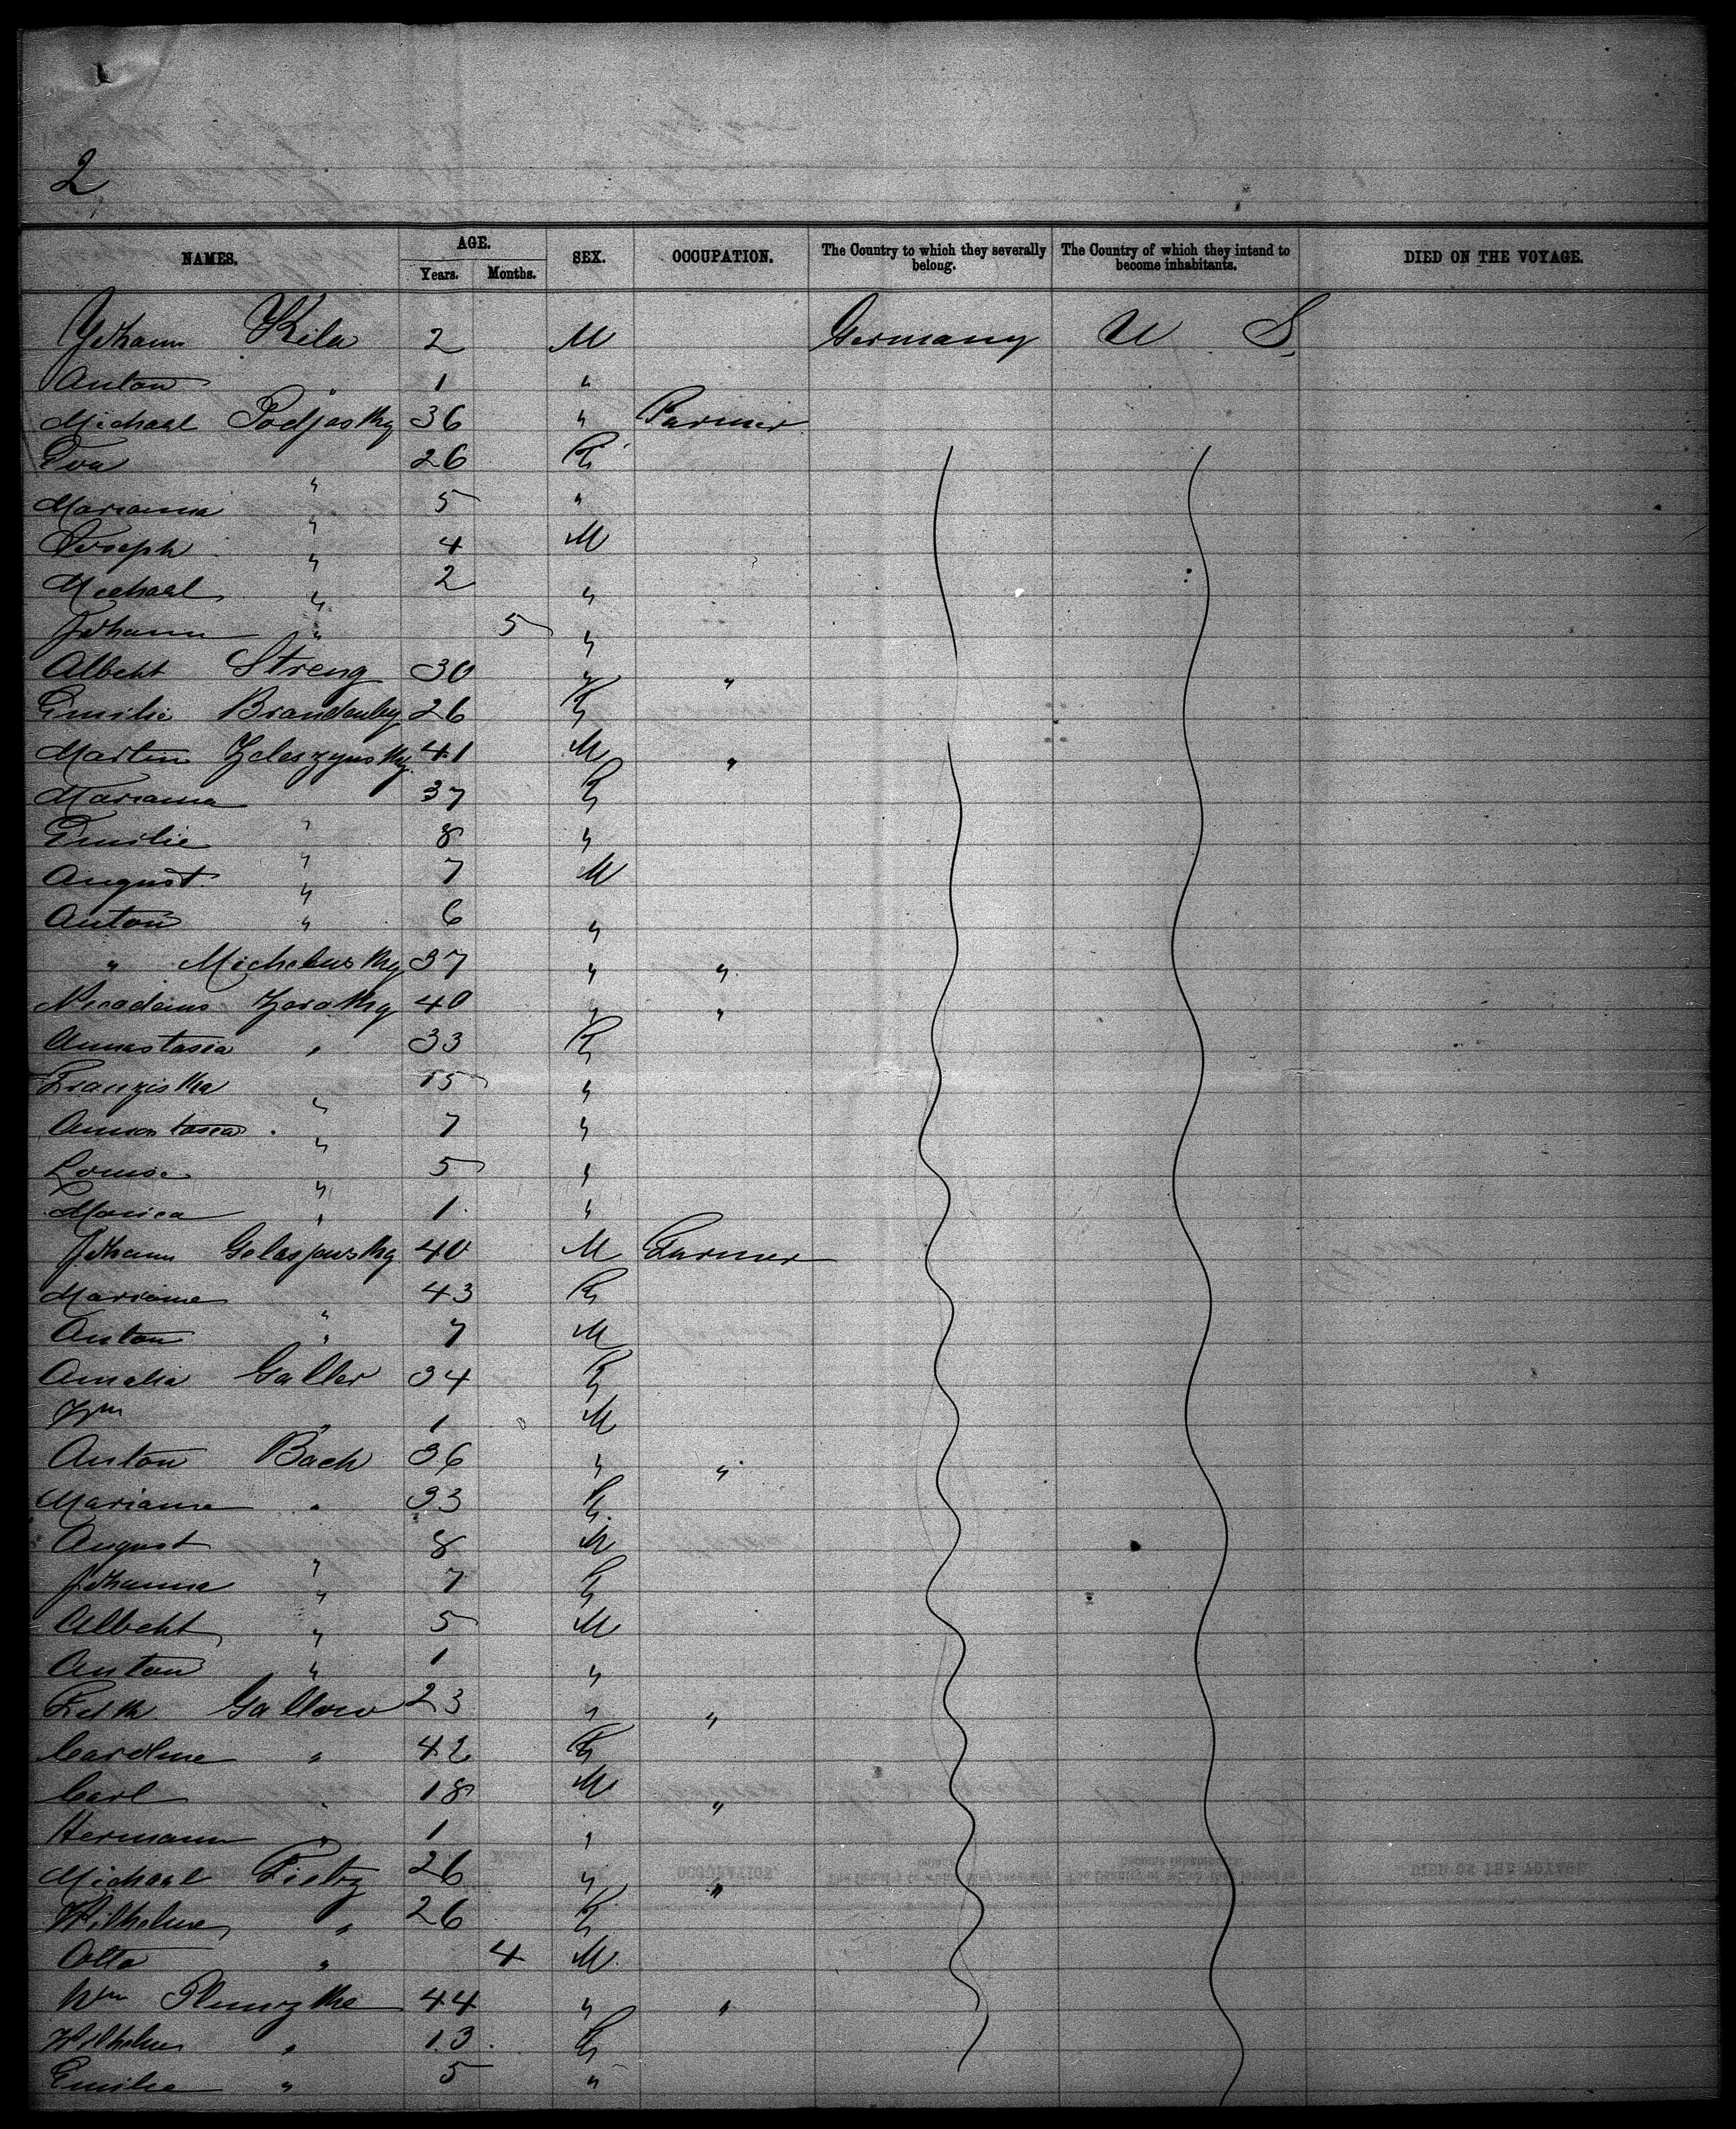 2
NAMES. AGE. SEX. OCCUPATION. The Country to which they severally belong. The Country of which they intend to become inhabitants. DIED ON THE VOYAGE.
Years. Months.
Johann Kila 2 M Germany U S
Anton " 1 "
Michael Podjasky 36 " Farmer
Eva " 26 F
Marianna " 5 "
Joseph " 4 M
Michael " 2 "
Johann " 5 "
Albert Streng 30 " "
Emilie Brandenbg 26 F
Martin Zeleszynsky 41 M "
Marianna " 37 F
Emilie " 8 "
August " 7 M
Anton " 6 "
" 37 " "
40 " "
Annastasia " 33 F
Franziska " 15 "
Annastasia " 7 "
Louise " 5 "
Monica " 1 "
Johann 40 M Farmer
Mariane " 43 F
Anton " 7 M
Amalia Galler 34 F
Wm " 1 M
Anton Bach 36 " "
Mariane " 33 F
August " 8 M
Johanna " 7 F
Albert " 5 M
Anton " 1 "
Gallow 23 " "
Caroline " 42 F
Carl " 18 M "
Hermann " 1 "
Michael Pietz 26 " "
Wilhelmine " 26 F
Otto " 4 M
Wm 44 " "
" 13 F
Emilie " 5 "